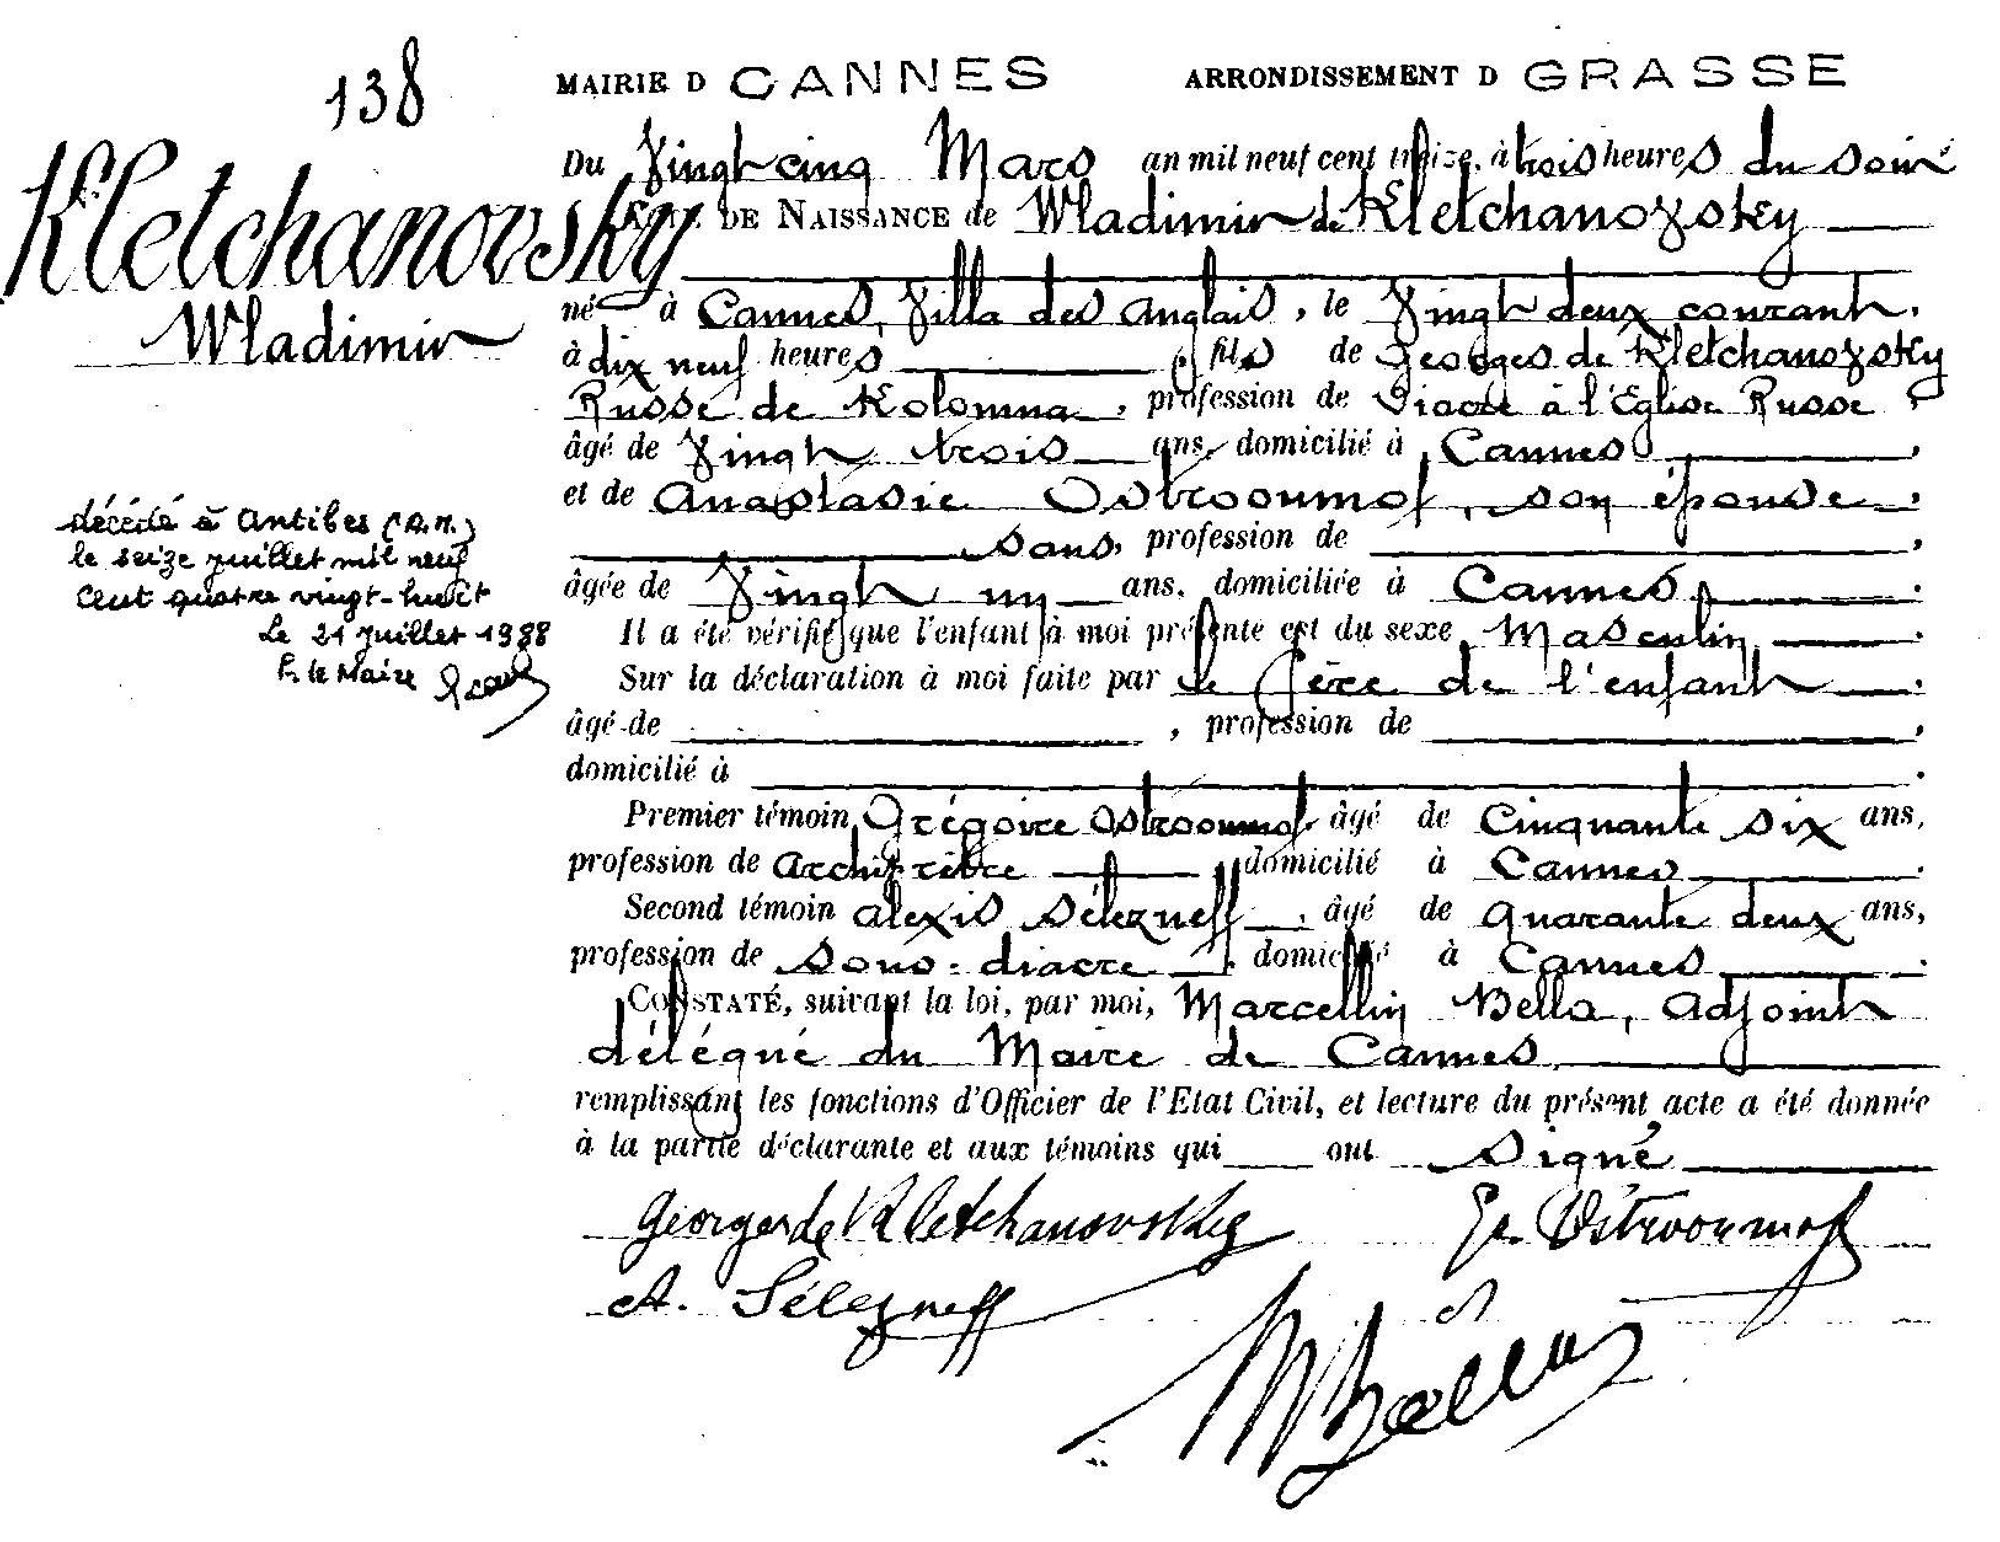 138
Kletchanovsky
Wladimir
décédé à Antibes (A.M.)
le seize juillet mil neuf
cent quatre vingt-huit
Le 21 juillet 1988
P. le Maire
MAIRIE D CANNES ARRONDISSEMENT D GRASSE
Du Vingt cinq Mars an mil neuf cent treize, à trois heures du soir
ACTE DE NAISSANCE de Wladimir de Kletchanovsky
né à Cannes, Villa des Anglais, le Vingt deux courant,
à dix neuf heures , fils de Georges de Kletchanovsky
Russe de Kolomna, profession de Diacre à l'Eglise Russe,
âgé de Vingt trois ans, domicilié à Cannes,
et de Anastasie Ostrooumof, son épouse,
sans, profession de ,
âgée de Vingt un ans, domiciliée à Cannes.
Il a été vérifié que l'enfant à moi présenté est du sexe Masculin.
Sur la déclaration à moi faite par le Père de l'enfant.
âgé de , profession de ,
domicilié à .
Premier témoin, Grégoire Ostrooumof, âgé de Cinquante six ans,
profession de Archiprêtre, domicilié à Cannes.
Second témoin Alexis Sélezneff, âgé de Quarante deux ans,
profession de Sous-diacre, domicilié à Cannes.
CONSTATÉ, suivant la loi, par moi, Marcellin Bella, Adjoint
délégué du Maire de Cannes
remplissant les fonctions d'Officier de l'Etat Civil, et lecture du présent acte a été donnée
à la partie déclarante et aux témoins qui ont signé
Georges de Kletchanovsky Gr. Ostrooumof
A. Sélezneff
M Bella